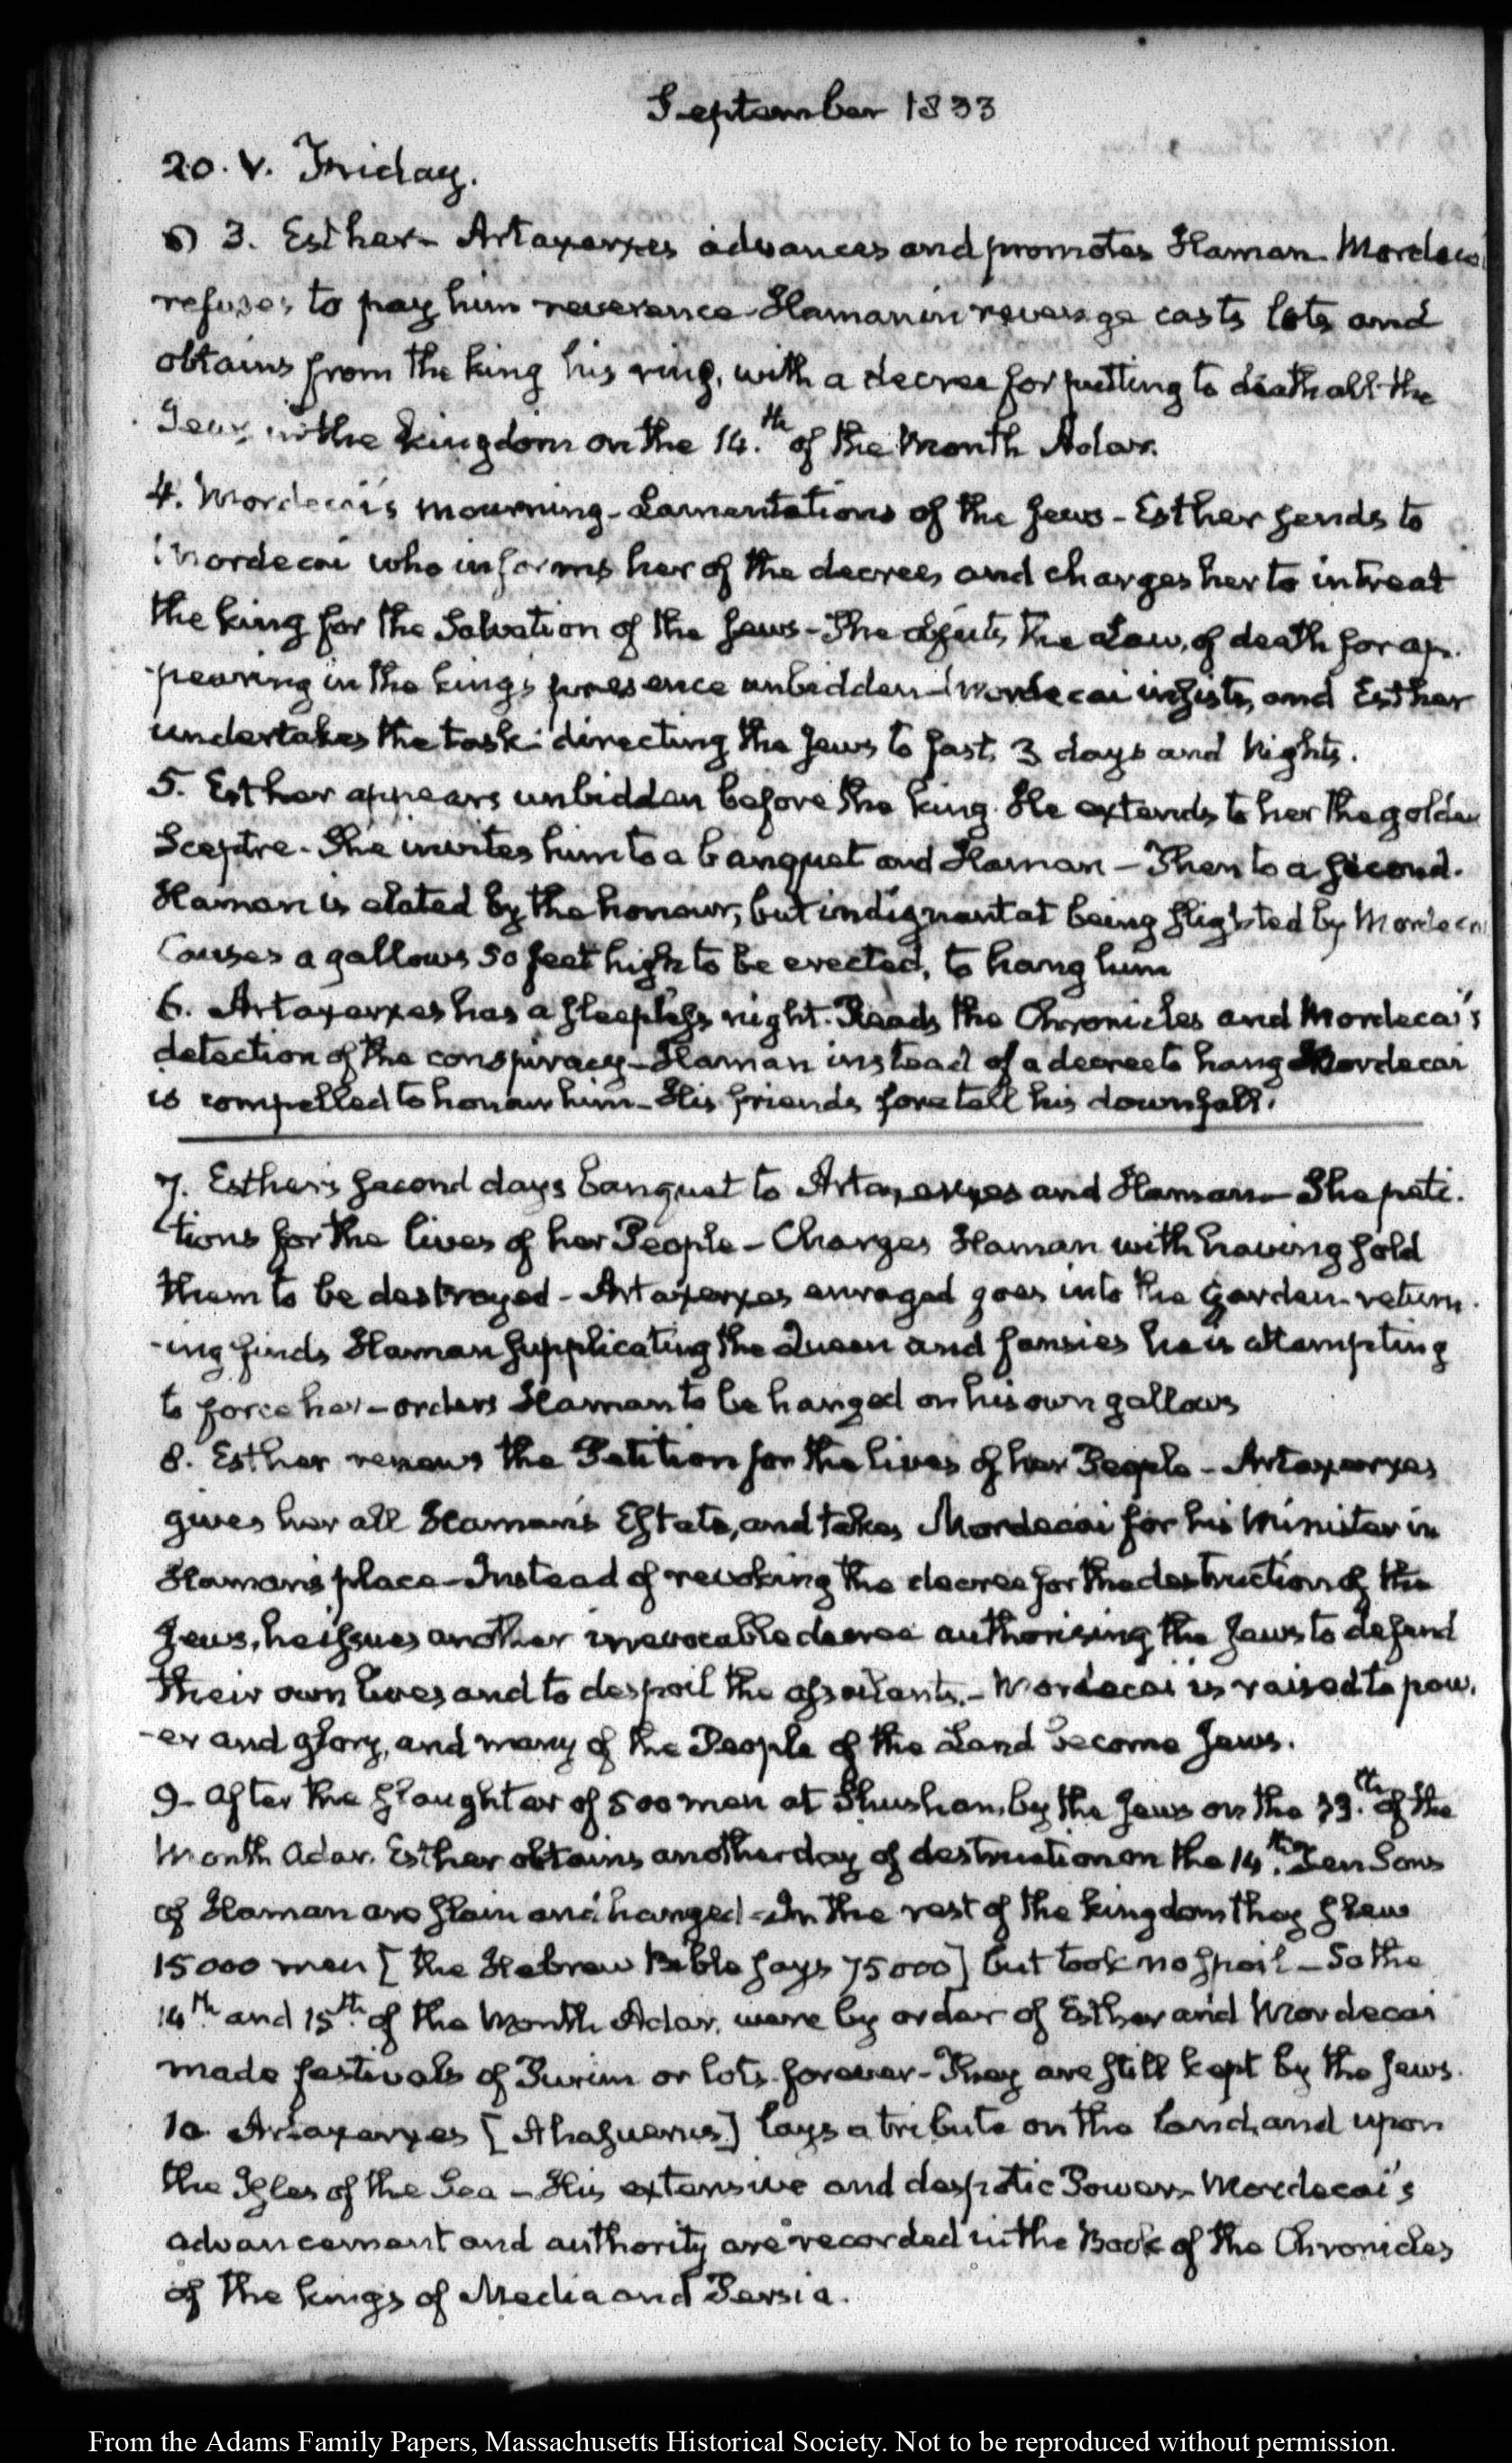 September 1833
20. V. Friday.
3. Esther - Artaxerxes advances and promotes Haman. Mordecai
refuses to pay him reverence - Haman in revenge casts lots and
obtains from the king his ring, with a decree for putting to death all the
Jews in the kingdom on the 14.th of the Month Adar.
4. Mordecai's mourning - Lamentations of the Jews - Esther sends to
Mordecai who informs her of the decree, and charges her to intreat
the king for the Salvation of the Jews - She objects the Law, of death for ap-
-pearing in the king's presence unbidden - Mordecai insists, and Esther
undertakes the task: directing the Jews to fast, 3 days and Nights.
5. Esther appears unbidden before the king. He extends to her the golden
Sceptre - She invites him to a banquet and Haman - Then to a second.
Haman is elated by the honour, but indignant at being slighted by Mordecai
Causes a gallows 50 feet high to be erected, to hang him
6. Artaxerxes has a sleepless night. Reads the Chronicles and Mordecai's
detection of the conspiracy - Haman instead of a decree to hang Mordecai
is compelled to honour him - His friends foretell his downfall.
7. Esther's second days banquet to Artaxerxes and Haman - She peti-
-tions for the lives of her People - Charges Haman with having sold
them to be destroyed - Artaxerxes enraged goes into the Garden - return-
-ing finds Haman supplicating the Queen and fansies he is attempting
to force her - orders Haman to be hanged on his own gallows
8. Esther renews the Petition for the lives of her People - Artaxerxes
gives her all Haman's Estate, and takes Mordecai for his Minister in
Haman's place - Instead of revoking the decree for the destruction of the
Jews, he issues another irrevocable decree authorising the Jews to defend
their own lives and to despoil the assailants. - Mordecai is raised to pow-
-er and glory, and many of the People of the Land become Jews.
9. After the slaughter of 500 men at Shushan, by the Jews on the 13.th of the
Month Adar. Esther obtains another day of destruction on the 14.th Ten Sons
of Haman are slain and hanged - In the rest of the kingdom they slew
15000 men [the Hebrew Bible says 75000] but took no spoil - So the
14th and 15th of the Month Adar, were by order of Esther and Mordecai
made festivals of Purim or lots forever - They are still kept by the Jews.
10 Artaxerxes [Ahasuerus] lays a tribute on the land, and upon
the Isles of the Sea - His extensive and despotic Power, Mordecai's
advancement and authority are recorded in the Book of the Chronicles
of the kings of Media and Persia.
From the Adams Family Papers, Massachusetts Historical Society. Not to be reproduced without permission.